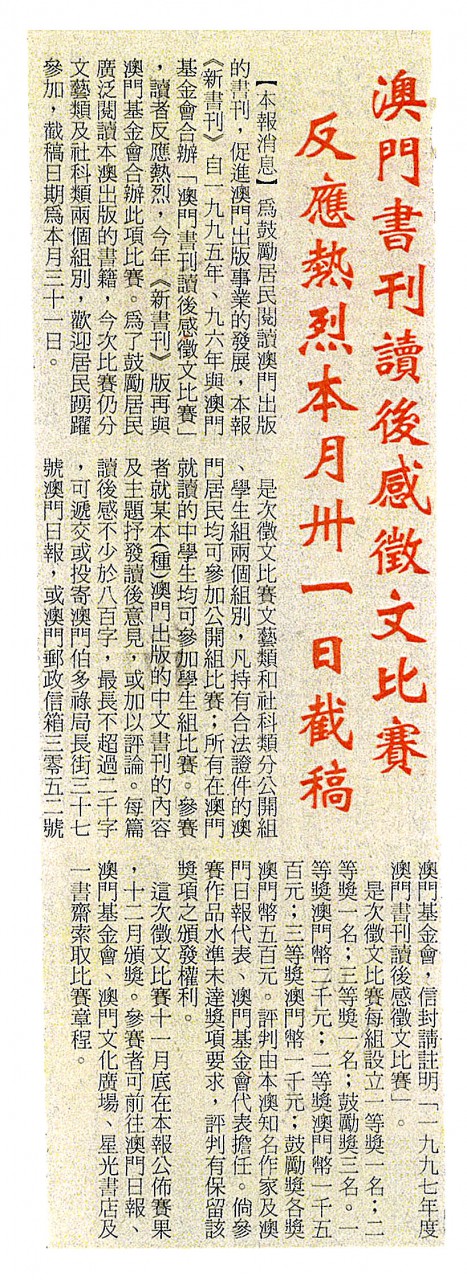 澳門書刊讀後感徵文比賽
反應熱烈本月卅一日截稿
【本報消息】為鼓勵居民閱讀澳門出版
的書刊，促進澳門出版事業的發展，本報
《新書刊》自一九九五年、九六年與澳門
基金會合辦「澳門書刊讀後感徵文比賽」
，讀者反應熱烈，今年《新書刊》版再與
澳門基金會合辦此項比賽。為了鼓勵居民
廣泛閱讀本澳出版的書籍，今次比賽仍分
文藝類及社科類兩個組別，歡迎居民踴躍
參加，截稿日期為本月三十一日。
是次徵文比賽文藝類和社科類分公開組
、學生組兩個組別，凡持有合法證件的澳
門居民均可參加公開組比賽；所有在澳門
就讀的中學生均可參加學生組比賽。參賽
者就某本(種)澳門出版的中文書刊的內容
及主題抒發讀後意見，或加以評論。每篇
讀後感不少於八百字，最長不超過二千字
，可遞交或投寄澳門伯多祿局長街三十七
號澳門日報，或澳門郵政信箱三零五二號
澳門基金會，信封請註明「一九九七年度
澳門書刊讀後感徵文比賽」。
是次徵文比賽每組設立一等獎一名；二
等獎一名；三等獎一名；鼓勵獎三名。一
等獎澳門幣二千元；二等獎澳門幣一千五
百元；三等獎澳門幣一千元；鼓勵獎各獎
澳門幣五百元。評判由本澳知名作家及澳
門日報代表、澳門基金會代表擔任。倘參
賽作品水準未達獎項要求，評判有保留該
獎項之頒發權利。
這次徵文比賽十一月底在本報公佈賽果
，十二月頒獎。參賽者可前往澳門日報、
澳門基金會、澳門文化廣場、星光書店及
一書齋索取比賽章程。